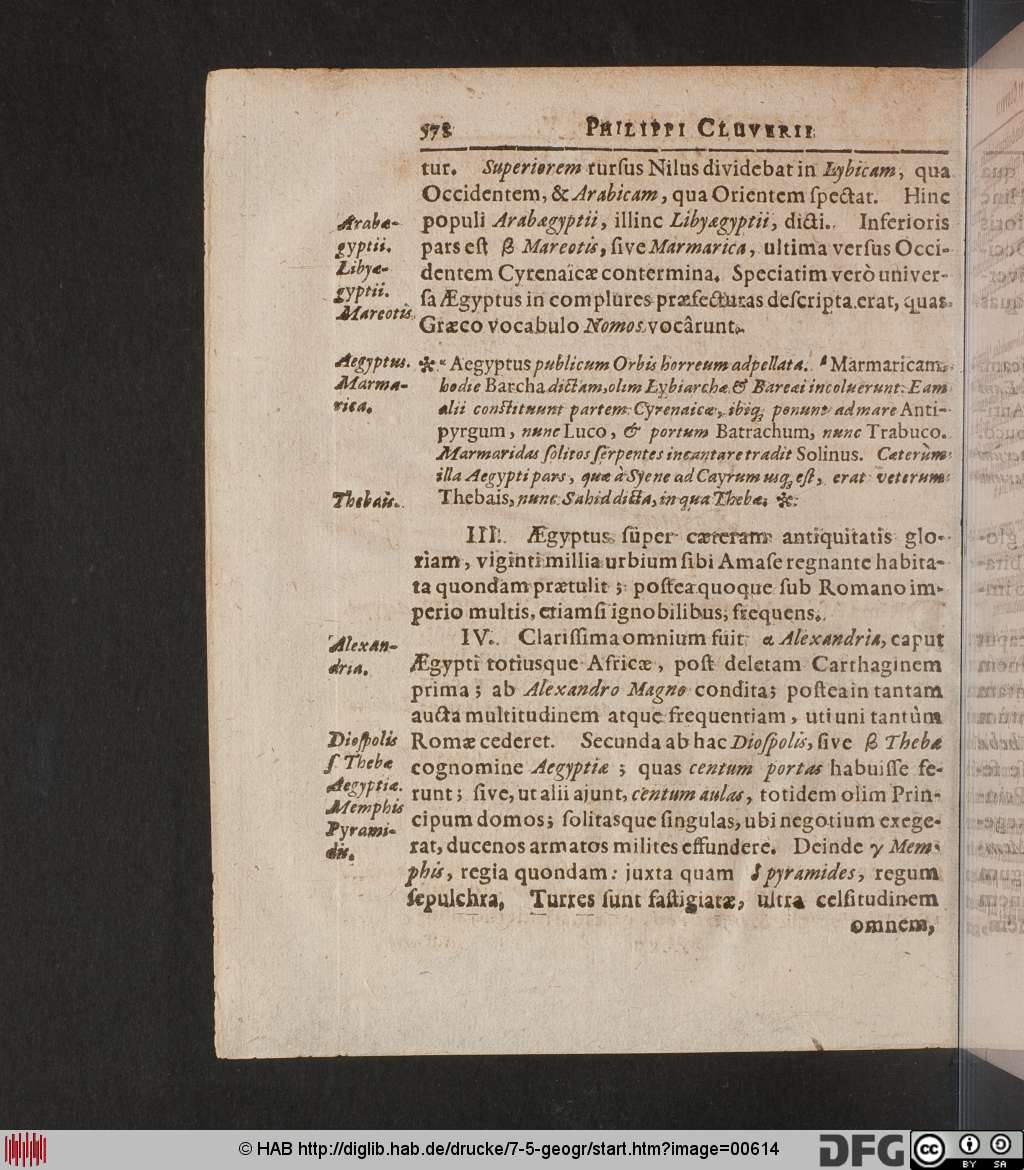 578 PHILIPPI CLUVERII
tur. Superiorem rurſus Nilus dividebat in Lybicam, qua
Occidentem, & Arabicam, qua Orientem ſpectat. Hinc
populi Arabægyptii, illinc Libyægyptii, dicti. Inferioris
pars eſt β Mareotis, ſive Marmarica, ultima verſus Occi-
dentem Cyrenaicæ contermina. Speciatim verò univer-
ſa Ægyptus in complures præfecturas deſcripta erat, quas
Græco vocabulo Nomos vocârunt.
Arabæ-
gyptii.
Libyæ-
gyptii.
Mareotis
✼ α Aegyptus publicum Orbis horreum adpellata. β Marmaricam
hodie Barcha dictam, olim Lybiarchæ & Bareai incoluerunt: Eam
alii conſtituunt partem Cyrenaicæ, ibiq; ponunt ad mare Anti-
pyrgum, nunc Luco, & portum Batrachum, nunc Trabuco.
Marmaridas ſolitos ſerpentes incantare tradit Solinus. Cæterùm
illa Aegypti pars, quæ à Syene ad Cayrum uſq; eſt, erat veterum
Thebais, nunc Sahid dicta, in qua Thebæ. ✼
Aegyptus.
Marma-
rica.
Thebais.
III. Ægyptus ſuper cæteram antiquitatis glo-
riam, viginti millia urbium ſibi Amaſe regnante habita-
ta quondam prætulit; poſtea quoque ſub Romano im-
perio multis, etiamſi ignobilibus, frequens.
IV. Clariſſima omnium fuit α Alexandria, caput
Ægypti totiusque Africæ, poſt deletam Carthaginem
prima; ab Alexandro Magno condita; poſtea in tantam
aucta multitudinem atque frequentiam, uti uni tantùm
Romæ cederet. Secunda ab hac Dioſpolis, ſive β Thebæ
cognomine Aegyptiæ; quas centum portas habuiſſe fe-
runt; ſive, ut alii ajunt, centum aulas, totidem olim Prin-
cipum domos; ſolitasque ſingulas, ubi negotium exege-
rat, ducenos armatos milites effundere. Deinde γ Mem-
phis, regia quondam: juxta quam δ pyramides, regum
ſepulchra, Turres ſunt faſtigiatæ, ultra celſitudinem
omnem,
Alexan-
dria.
Dioſpolis
ſ. Thebæ
Aegyptiæ.
Memphis
Pyrami-
dis.
© HAB http://diglib.hab.de/drucke/7-5-geogr/start.htm?image=00614
DFG
cc
BY SA